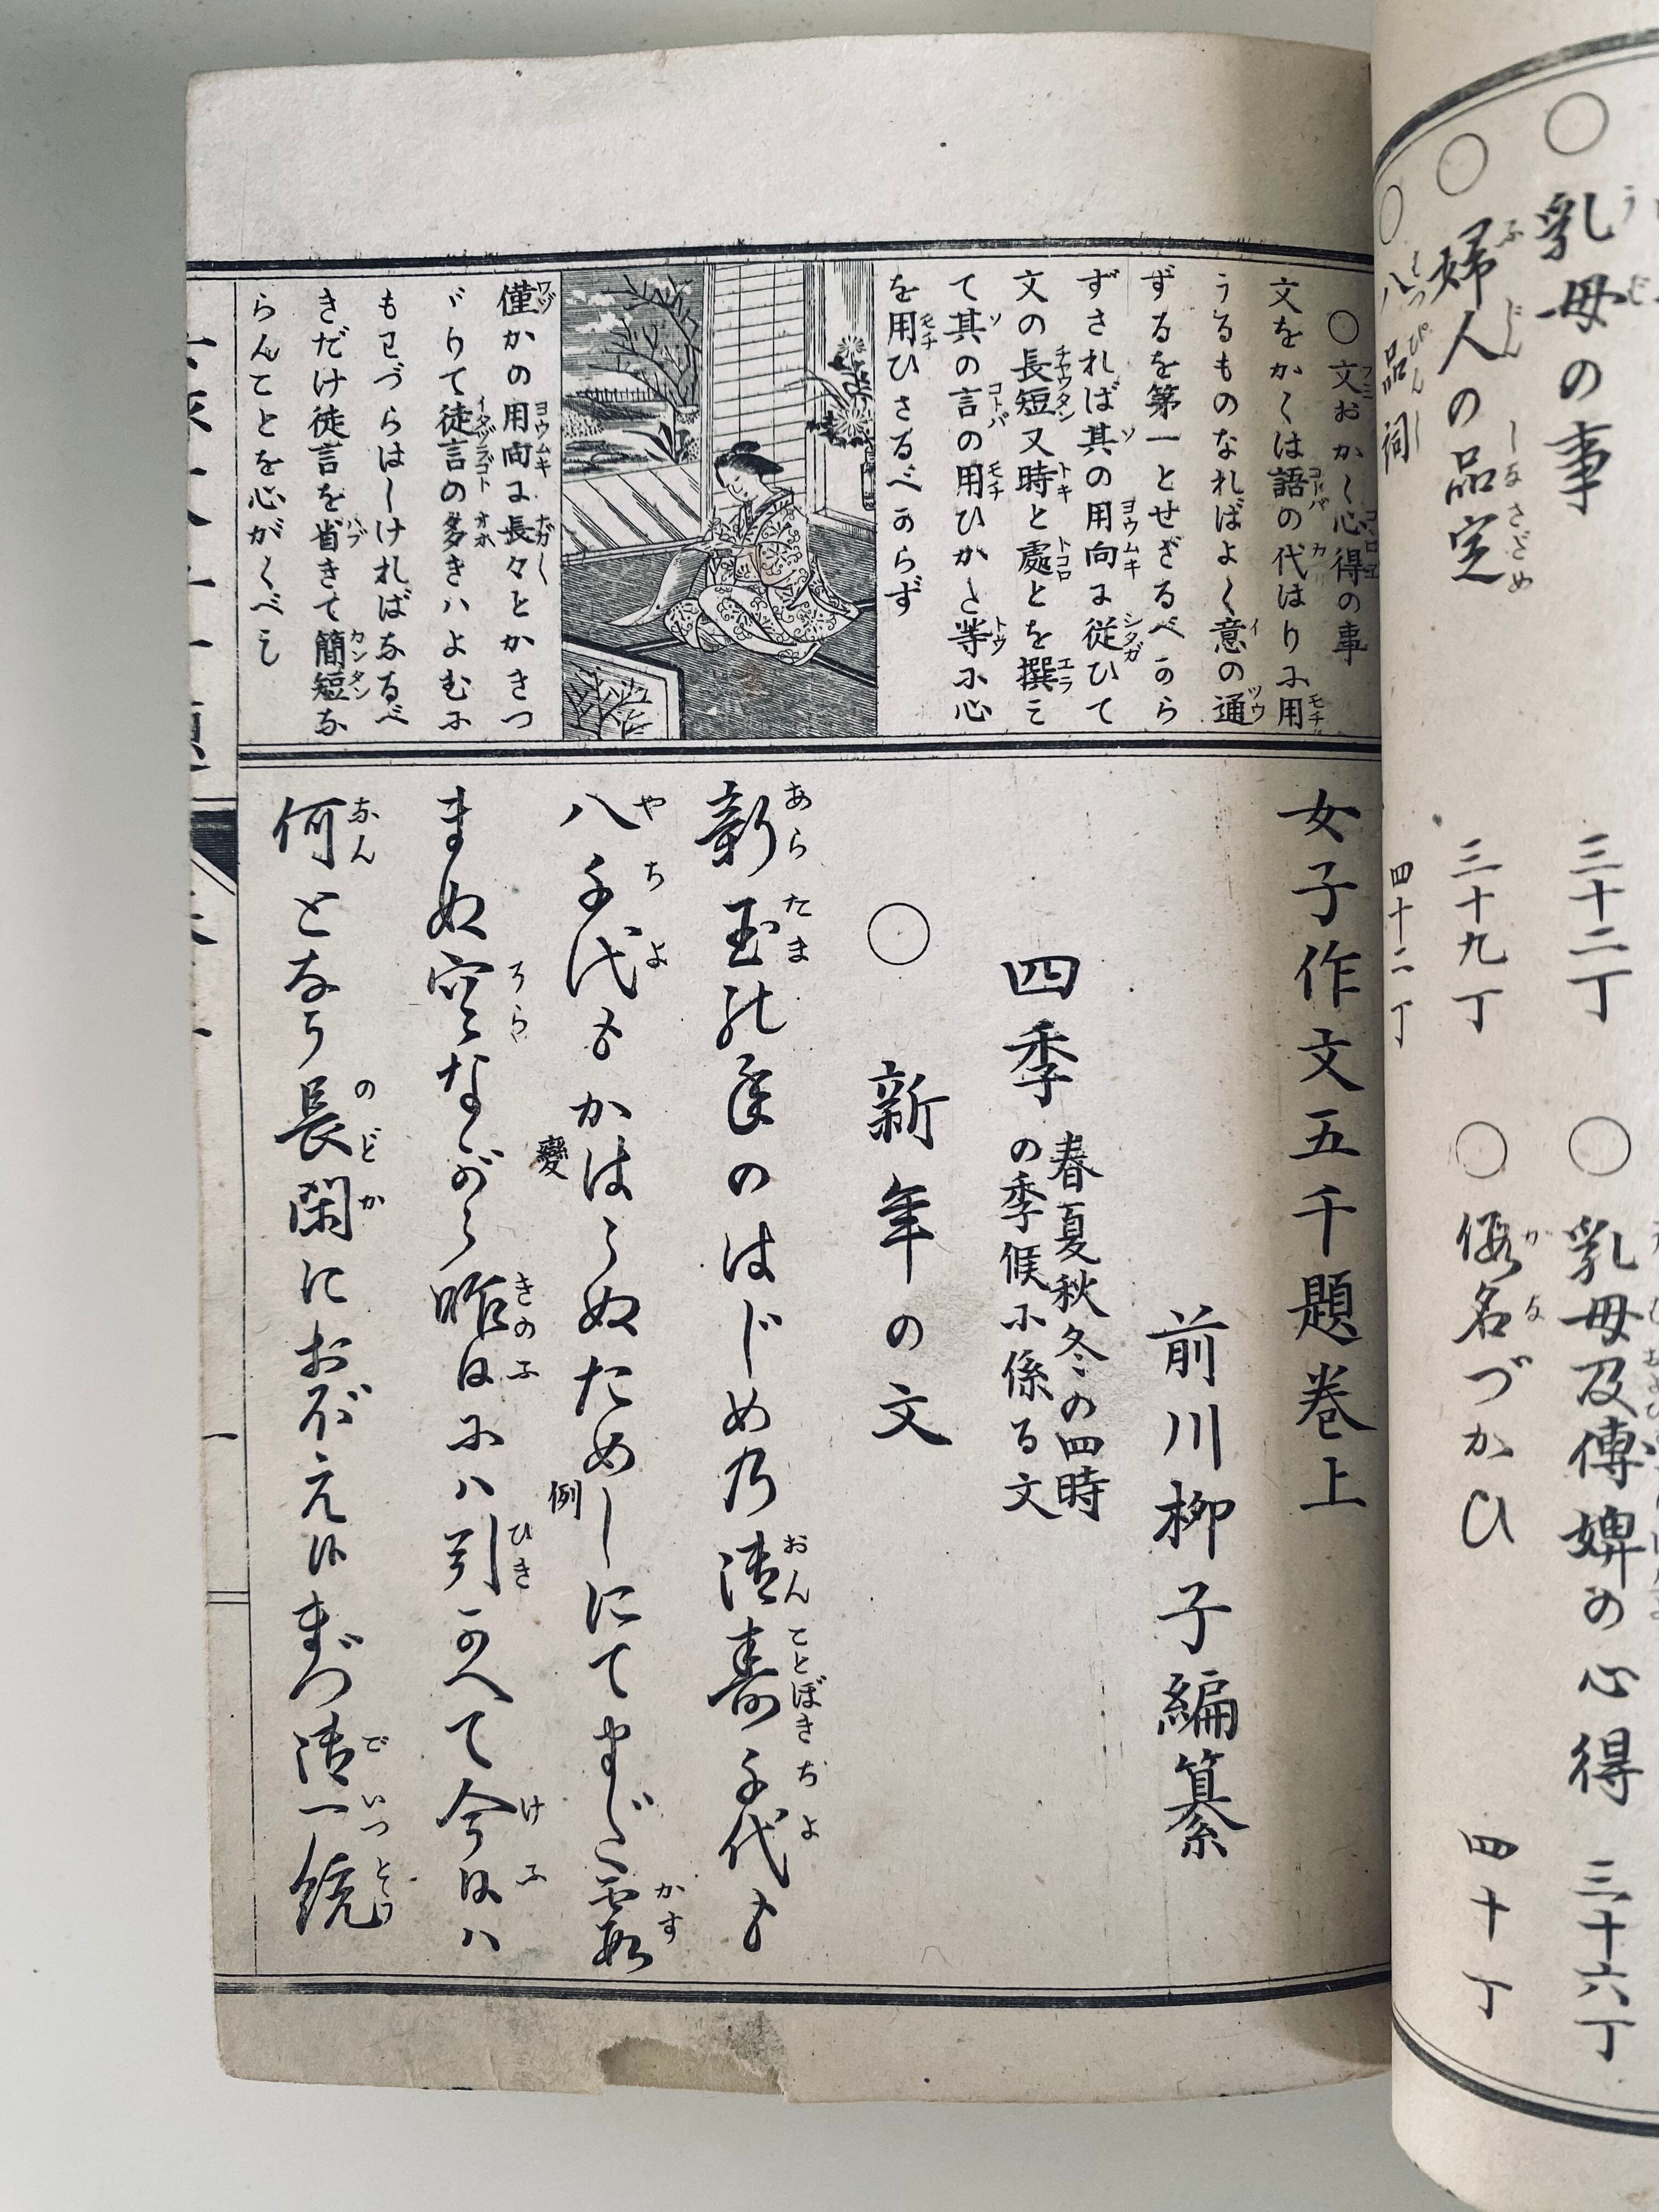 乳母の事 三十二丁
○乳母及傅婢の心得 三十六丁
○婦人の品定 三十九丁
○仮名づかひ 四十丁
○八品詞 四十二丁
○文おかく心得の事
文をかくは語の代はりに用
うるものなればよく意の通
ずるを第一とせざるべから
ずされば其の用向に従ひて
文の長短又時と處とを撰み
て其の言の用ひかた等に心
を用ひざるべからず
僅かの用向に長々とかきつ
ゞりて徒言の多きハよむに
もわづらはしければなるべ
きだけ徒言を省きて簡短な
らんことを心がくべし
女子作文五千題巻上
前川柳子編纂
四季 春夏秋冬の四時
の季候に係る文
○新年の文
新玉の年のはじめの御壽千代も
八千代もかはらぬためしにてまだ霞
變
例
まぬ空ながら昨日にハ引かへて今日ハ
何となう長閑におぼえ候まづ御一統
一